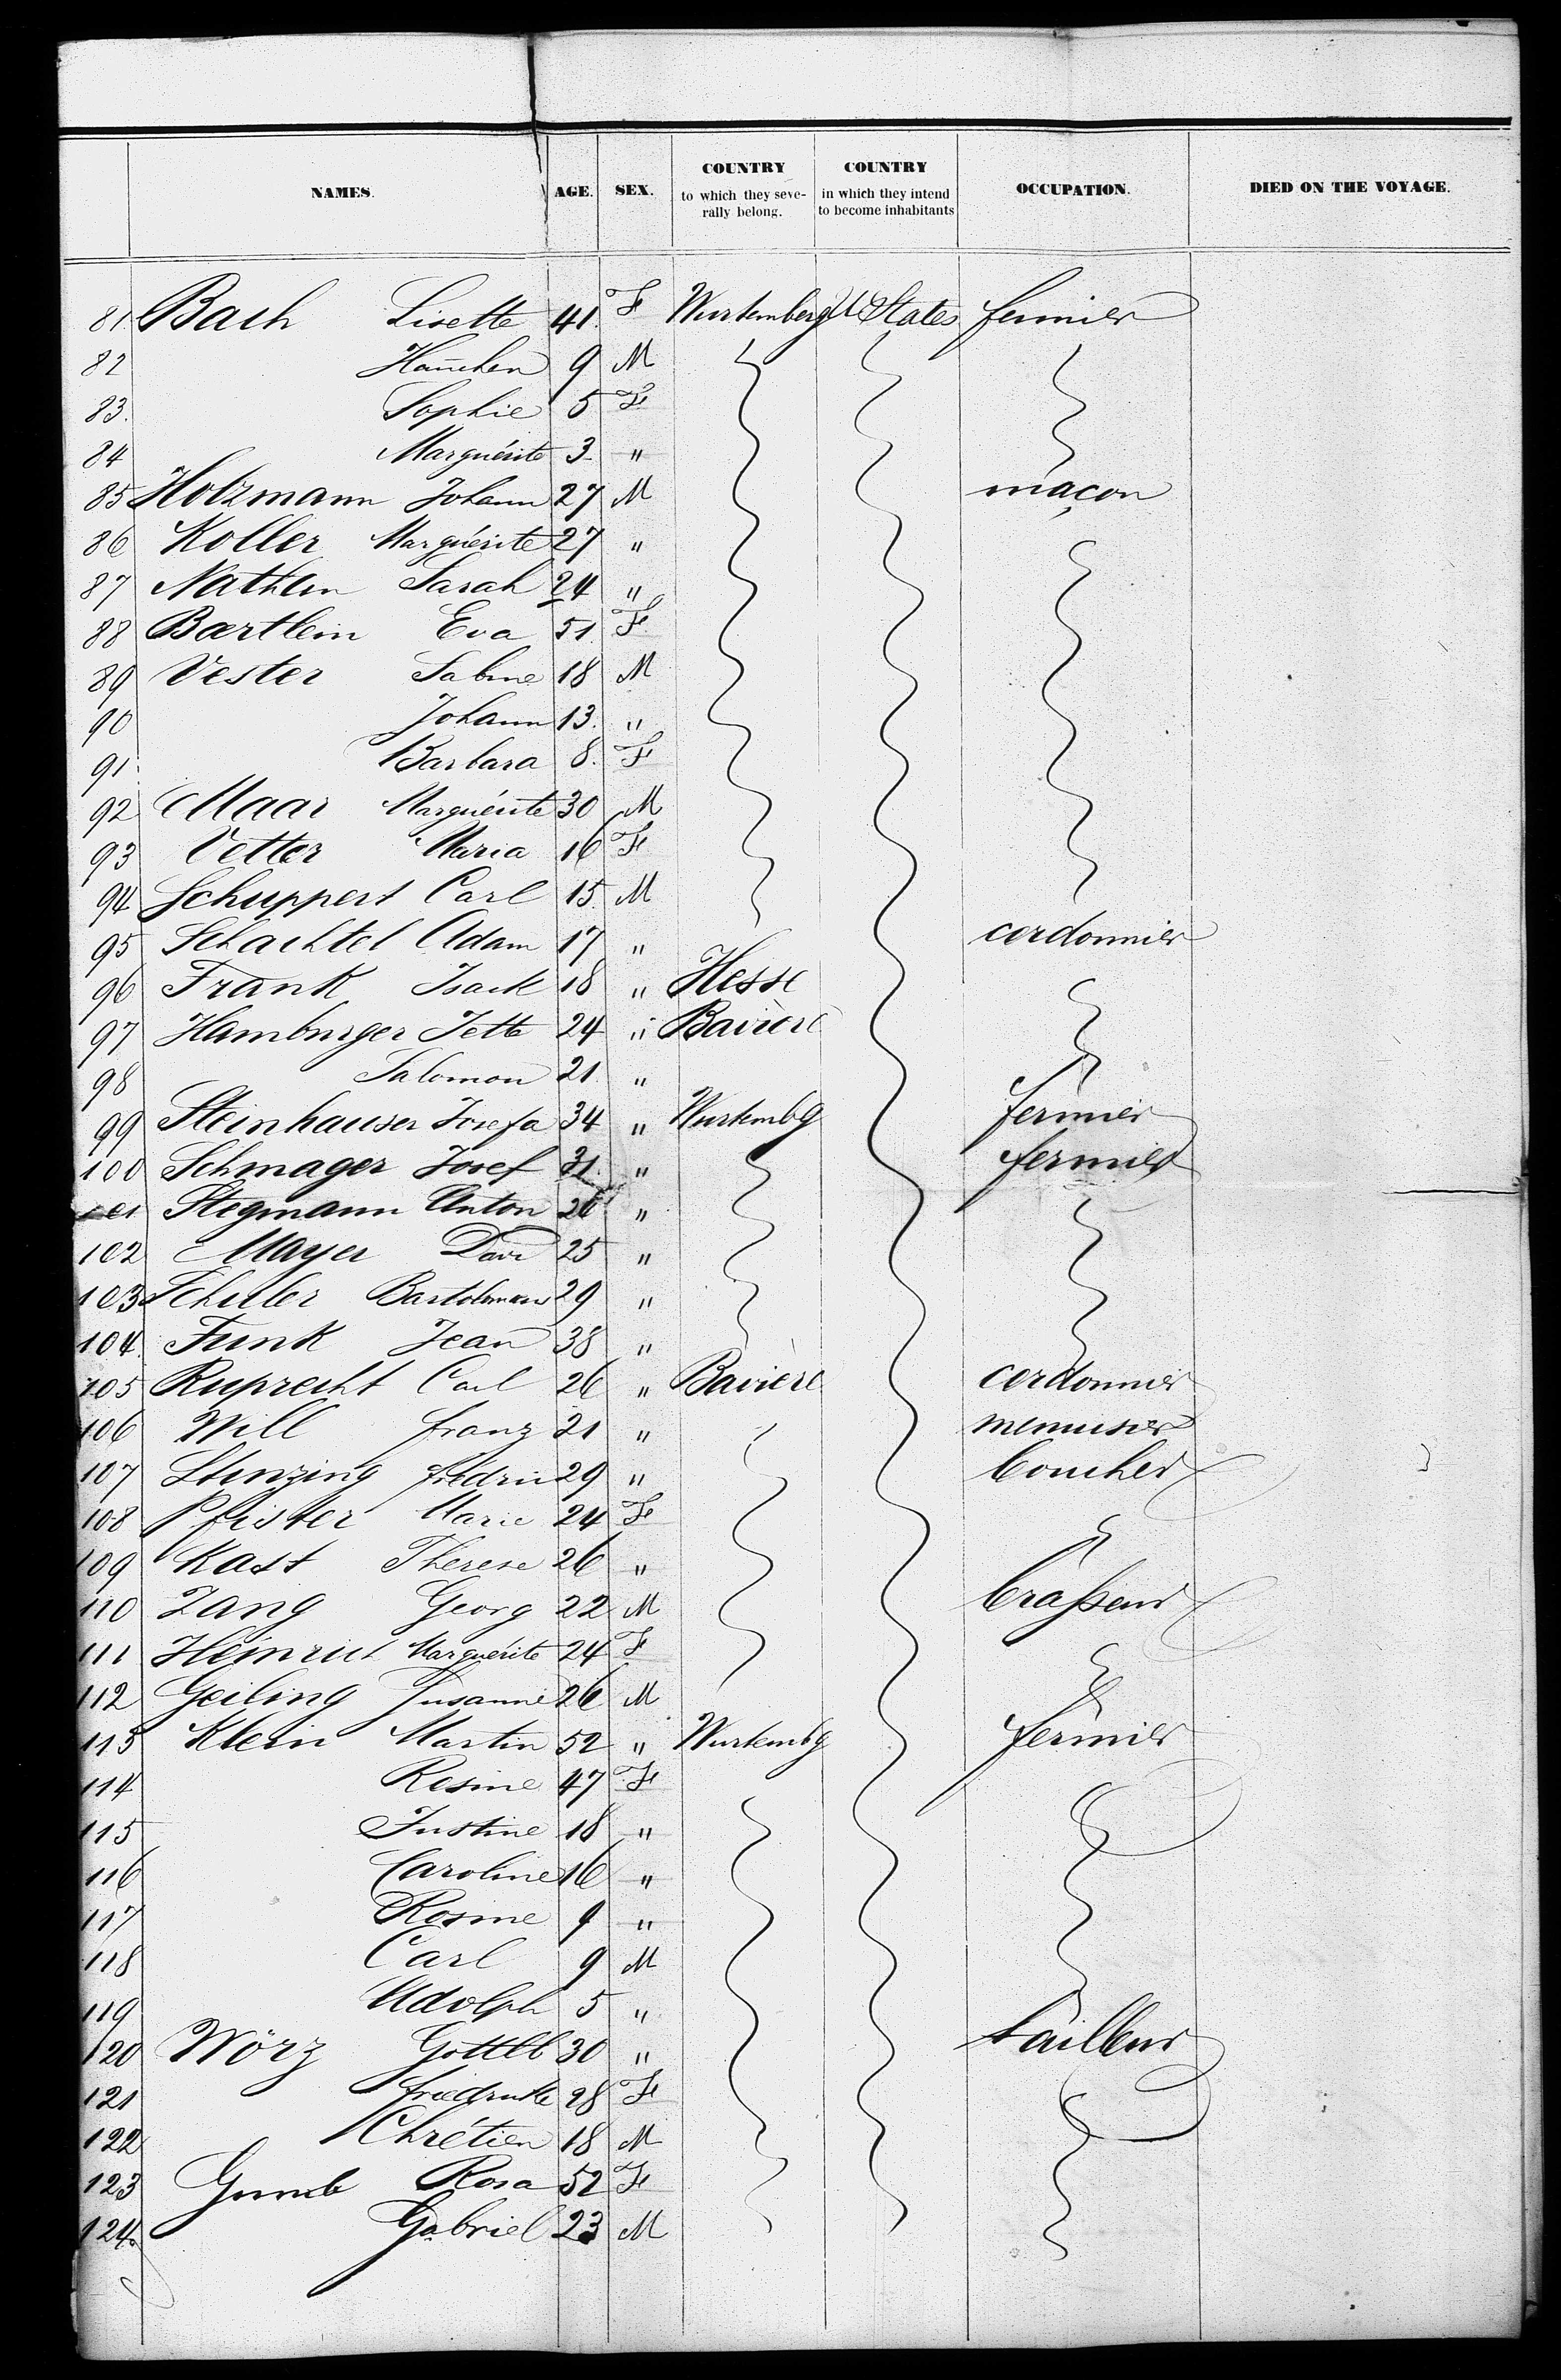 NAMES. AGE. SEX. COUNTRY to which they severally belong. COUNTRY in which they intend to become inhabitants OCCUPATION. DIED ON THE VOYAGE.
81 Bach Lisette 41 F Wurtemberg U States fermier
82 Hañchen 9 M
83. Sophie 5 F
84 Marguérite 3 "
85 Holzmann Johann 27 M maçon
86 Koller Marguérite 27 "
87 Nathan Sarah 24 "
88 Bartlein Eva 51 F
89 Vester Sabine 18 M
90 Johann 13. "
91 Barbara 8. F
92 Maar Marguérite 30 M
93 Vetter Maria 16 F
94 Schuppert Carl 15 M
95 Schachtel Adam 17 " cordonnier
96 Frank Isack 18 " Hesse
97 Hamburger Jette 24 " Bavière
98 Salomon 21 "
99 Steinhauser Josefa 34 " Wurtembg fermier
100 Schmager Josef 31. " fermier
101 Stegmann Anton 26 "
102 Mayer 25 "
103 Schuler 29 "
104 Funk Jean 38 "
105 Ruprecht Carl 26 " Bavière cordonnier
106 Will Franz 21 " menusier
107 Stenzing 29 " boucher
108 Pfister Marie 24 F
109 Kast Therese 26 "
110 Zang Georg 22 M brasseur
111 Heinrich Marguérite 24 F
112 Geiling Susanne 26 M
113 Klein Martin 52 " Wurtembg fermier
114 Rosine 47 F
115 Justine 18 "
116 Caroline 16 "
117 Rosine 9 "
118 Carl 9 M
119 Adolph 5 "
120 Wörz Gottlb 30 " tailleur
121 28 F
122 Chrétien 18 M
123 Rosa 52 F
124. Gabriel 23 M